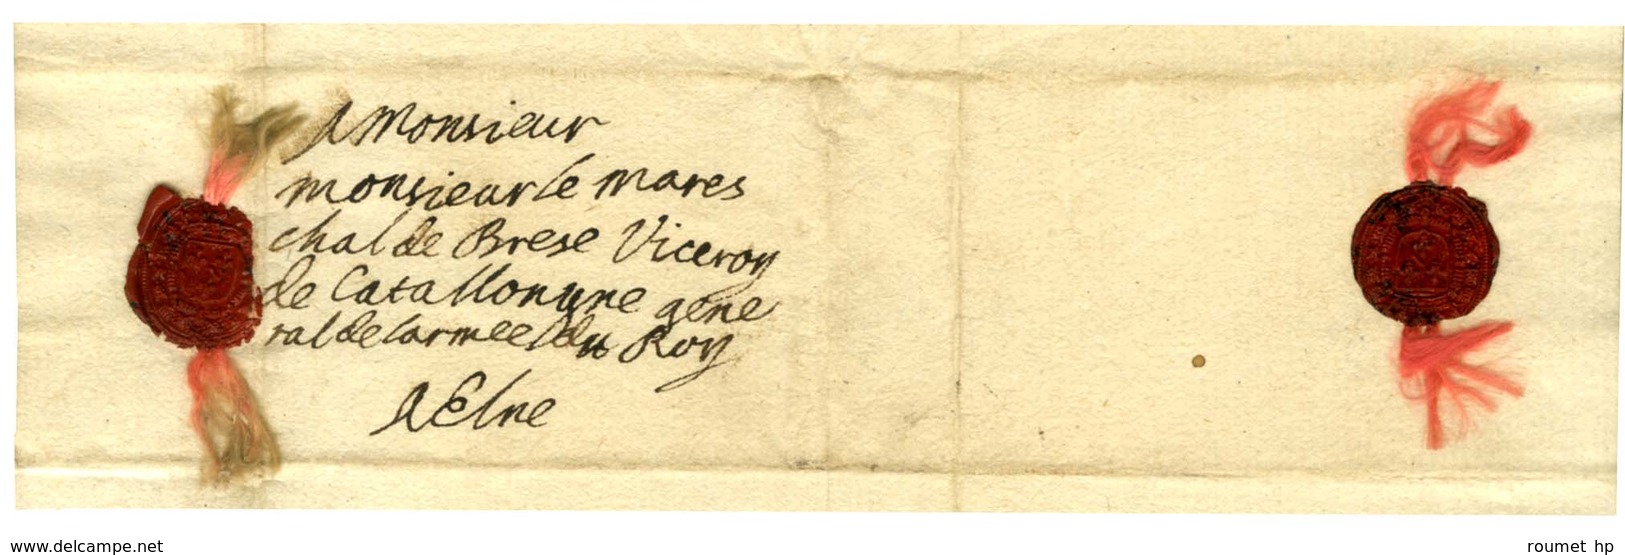 A Monsieur
monsieur le mares
chal de Brese Viceroy
de Catallongne gene
ral de larmee du Roy
A Elne
www.delcampe.net
roumet hp